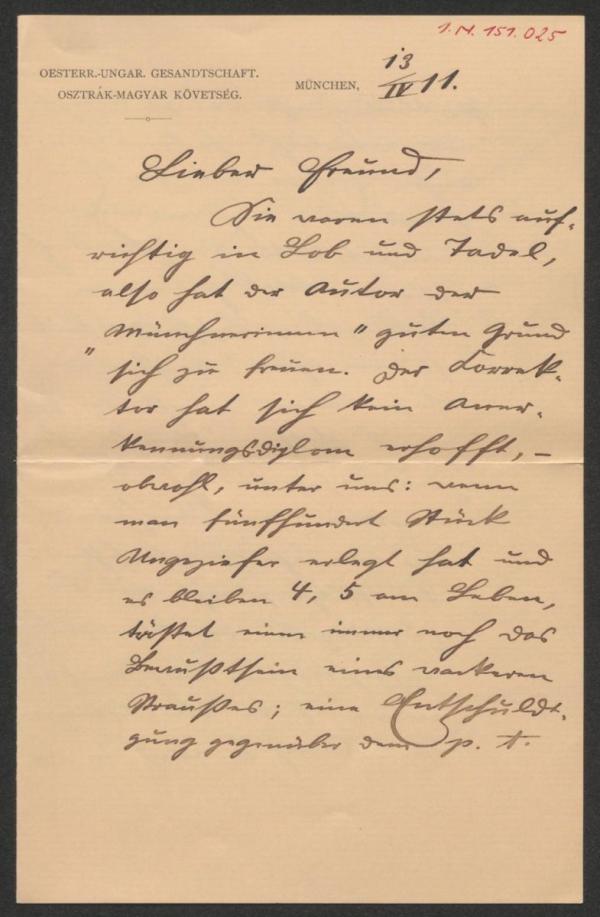 I.N. 151.025
OESTERR.-UNGAR. GESANDTSCHAFT.
OSZTRÁK-MAGYAR KÖVETSÉG.
MÜNCHEN, 13/IV 11.
Lieber Freund,
Sie waren stets auf-
richtig in Lob und Tadel,
also hat der Autor der
„Münchnerinnen" guten Grund
sich zu freuen. Der Korrek-
tor hat sich kein Aner-
kennungsdiplom erhofft, –
obwohl, unter uns: wenn
man fünfhundert Stück
Ungeziefer erlegt hat und
es bleiben 4, 5 am Leben,
tröstet einen immer noch das
Bewußtsein eines wackeren
Straußes; eine Entschuldi-
gung gegenüber dem p. t.